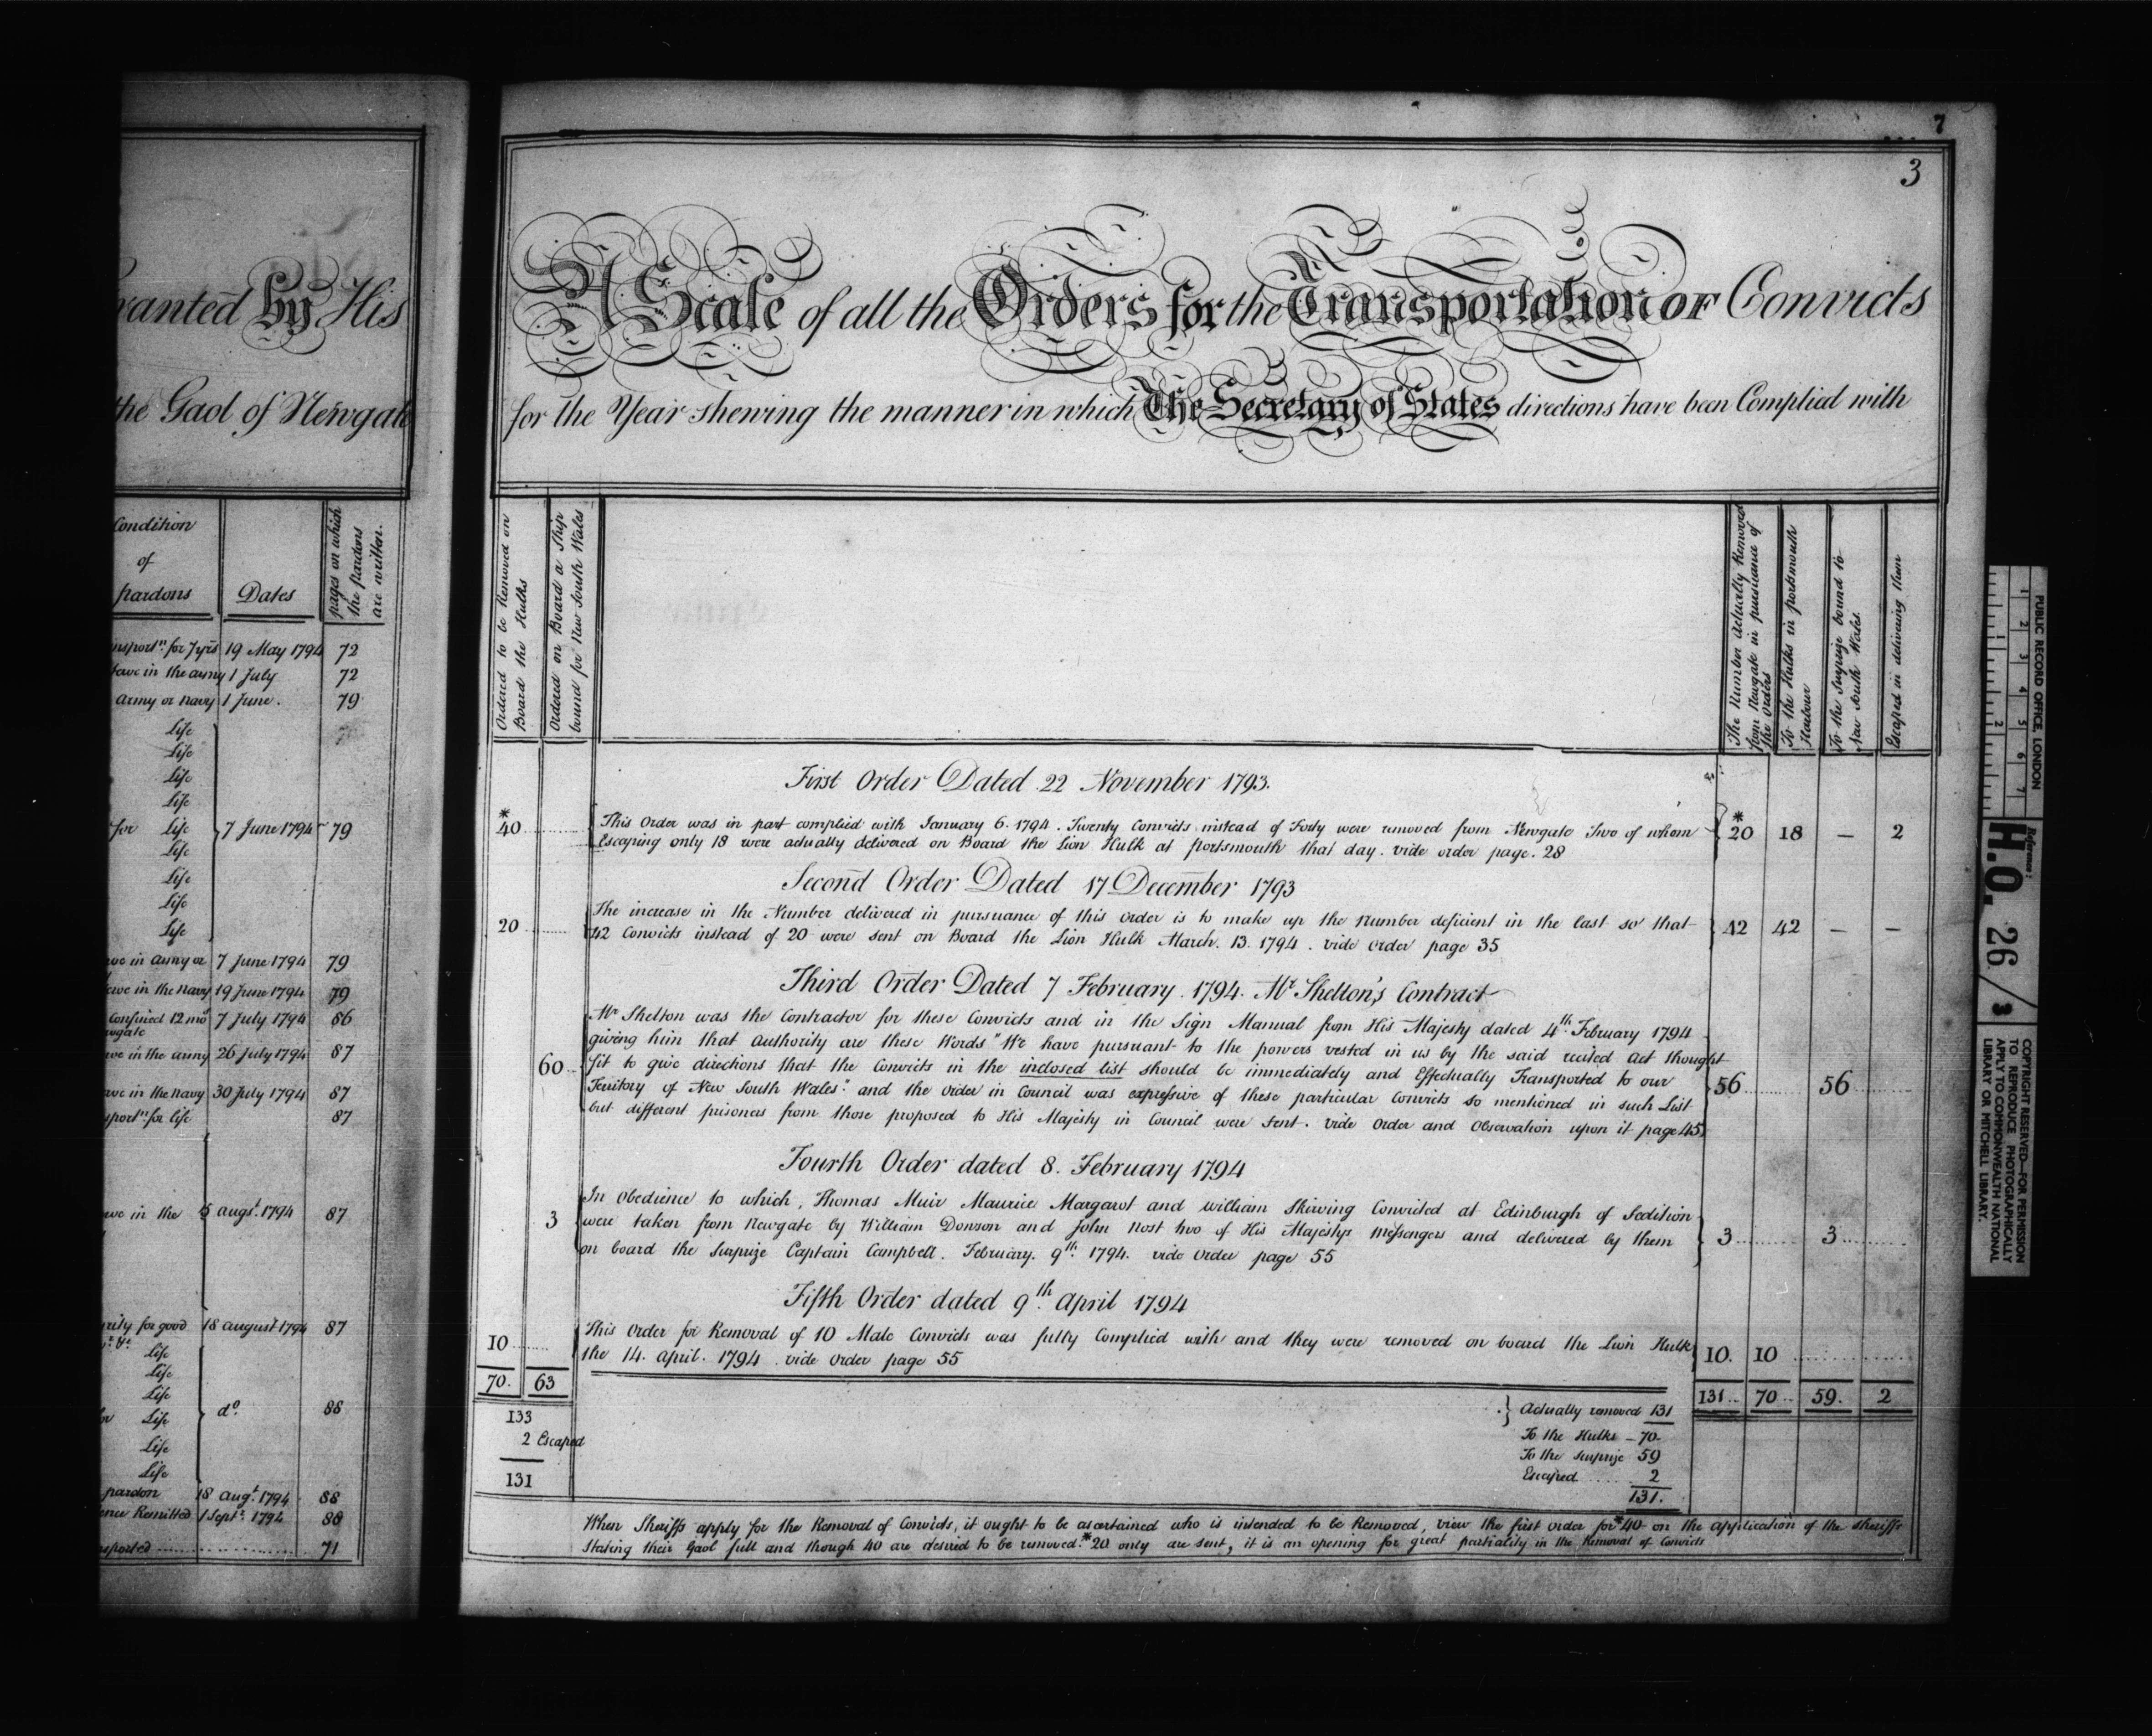 ranted by His
the Gaol of Newgate
Condition
of
pardons
Dates
pages on which
the pardons
are written.
for 7 yrs 19 May 1794 72
in the army 1 July 72
Army or Navy 1 June. 79
Life
Life
Life
Life
for Life 7 June 1794 79
Life
Life
Life
Life
in army or 7 June 1794 79
in the Navy 19 June 1794 79
Confined 12 mos 7 July 1794 86
in the army 26 July 1794 87
in the Navy 30 July 1794 87
for life 87
in the 5 augst. 1794 87
for good 18 august 1794 87
Life
Life
Life
Life do. 88
Life
Life
pardon 18 augt. 1794 88
Remitted 1 Septr. 1794 88
71
7
3
A Scale of all the Orders for the Transportation OF Convicts
for the Year shewing the manner in which The Secretary of States directions have been Complied with
Ordered to be Removed on
Board the Hulks
Ordered on Board a Ship
bound for New South Wales
The Number actually Removed
from Newgate in pursuance of
the orders
To the Hulks in portsmouth
Harbour
To the Surprize bound to
New South Wales.
Escaped in delivering them
First Order Dated 22 November 1793.
*40 This Order was in part complied with January 6. 1794. Twenty Convicts instead of Forty were removed from Newgate Two of whom *20 18 — 2
Escaping only 18 were actually delivered on Board the Lion Hulk at portsmouth that day. vide order page. 28
Second Order Dated 17 December 1793
20 The increase in the Number delivered in pursuance of this order is to make up the Number deficient in the last so that 42 42 — —
42 Convicts instead of 20 were sent on Board the Lion Hulk March. 13. 1794. vide Order page 35
Third Order Dated 7 February. 1794. Mr. Shelton's Contract
Mr Shelton was the Contractor for these Convicts and in the Sign Manual from His Majesty dated 4th February 1794
giving him that Authority are these Words "We have pursuant to the powers vested in us by the said recited Act thought
60 fit to give directions that the Convicts in the inclosed list should be immediately and Effectually Transported to our
Territory of New South Wales" and the Order in Council was expressive of these particular Convicts so mentioned in such List 56 56
but different prisoners from those proposed to His Majesty in Council were sent. vide Order and Observation upon it page 45
Fourth Order dated 8. February 1794
In Obedience to which, Thomas Muir Maurice Margarot and william Skirving Convicted at Edinburgh of Sedition
3 were taken from Newgate by William Dowson and John Nost two of His Majestys Messengers and delivered by them 3 3
on board the Surprize Captain Campbell. February. 9th. 1794. vide Order page 55
Fifth Order dated 9th. April 1794
10 This Order for Removal of 10 Male Convicts was fully Complied with and they were removed on board the Lion Hulk 10. 10
the 14. April. 1794. vide Order page 55
70. 63 131 70 59. 2
133
2 Escaped
131
Actually removed 131
To the Hulks — 70
To the Surprize 59
Escaped .... 2
131.
When Sheriffs apply for the Removal of Convicts, it ought to be ascertained who is intended to be Removed, view the first order for *40 on the application of the sheriffs
stating their Gaol full and though 40 are desired to be removed *20 only are sent, it is an opening for great partiality in the Removal of Convicts
PUBLIC RECORD OFFICE, LONDON
1 2 3 4 5 6 7
1 2
Reference:
H.O. 26/3
COPYRIGHT RESERVED—FOR PERMISSION
TO REPRODUCE PHOTOGRAPHICALLY
APPLY TO COMMONWEALTH NATIONAL
LIBRARY OR MITCHELL LIBRARY.